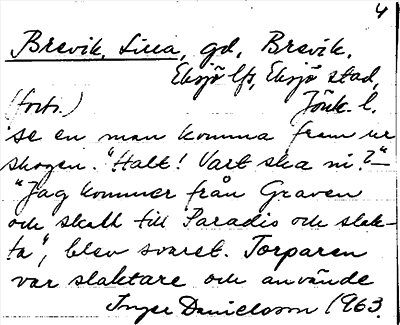 4
Bresvik, Lilla, gd, Bresvik,
Eksjö lfs, Eksjö stad,
(forts.) Jönk. l.
se en man komma fram ur
skogen. "Halt! Vart ska ni?"
"Jag kommer från Graven
och skall till Paradis och slak-
ta", blev svaret. Torparen
var slaktare och använde
Inger Danielsson 1963.